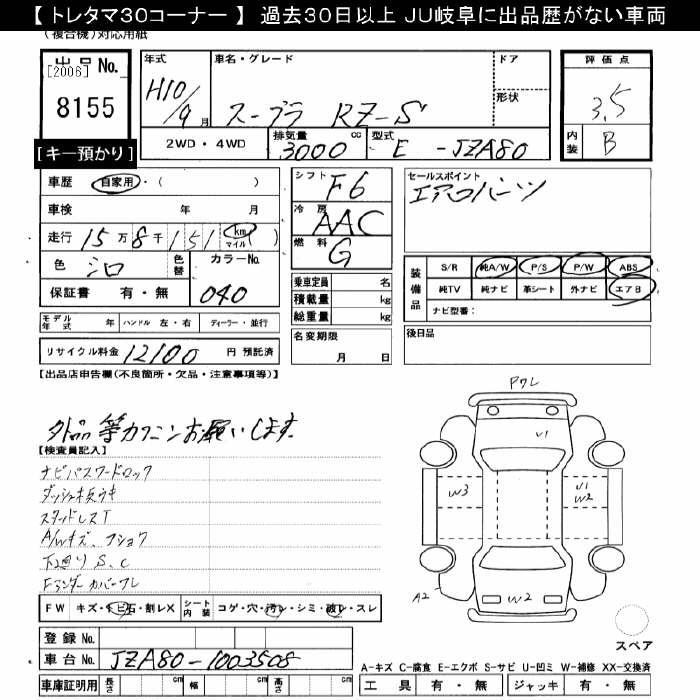 【 トレタマ30コーナー 】 過去30日以上 JU岐阜に出品歴がない車両
(複合機)対応用紙
出品 No.
[2006]
8155
【キー預かり】
年式
H10/9月
車名・グレード
スープラ RZ-S
ドア
形状
評価点
3.5
内装 B
2WD・4WD
排気量 3000 cc
型式 E -JZA80
車歴 自家用・( )
車検 年 月
走行 15万8千151 km マイル ( )
色 シロ 色替
カラーNo. 040
保証書 有・無
シフト F6
冷房 AAC
燃料 G
乗車定員 名
積載量 kg
総重量 kg
名変期限 月 日
セールスポイント
エアロパーツ
装備品
S/R 純A/W P/S P/W ABS
純TV 純ナビ 革シート 外ナビ エアB
ナビ型番:
後日品
モデル年式 年 ハンドル 左・右 ディーラー・並行
リサイクル料金 12100 円 預託済
【出品店申告欄(不良箇所・欠品・注意事項等)】
外品等カクニンお願いします
【検査員記入】
ナビパスワードロック
ダッシュ板ウキ
スタッドレスT
A/Wキズ、フショク
下廻りS、C
Fフェンダーカバーワレ
FW キズ・トビ石・割レX シート内装 コゲ・穴・汚レ・シミ・破レ・スレ
PワレV1
W3
V1
W2
A2
W2
スペア
登録 No.
車台 No. JZA80-1003508
車庫証明用 長さ cm 幅 cm 高さ cm
A-キズ C-腐食 E-エクボ S-サビ U-凹ミ W-補修 XX-交換済
工具 有・無 ジャッキ 有・無